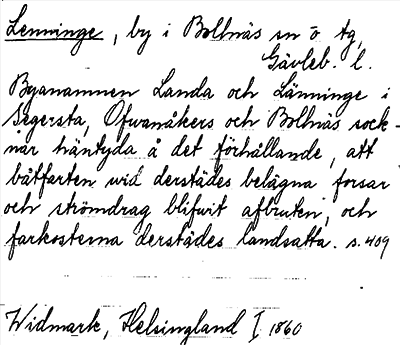 Lenninge, by i Bollnäs sn ö tg,
Gävleb. l.
Byanamnen Landa och Länninge i
Segersta, Ofvanåkers och Bollnäs sock-
nar häntyda å det förhållande, att
båtfarten vid derstädes belägna forsar
och strömdrag blifvit afbruten, och
farkosterna derstädes landsatta. s. 409
Widmark, Helsingland I 1860